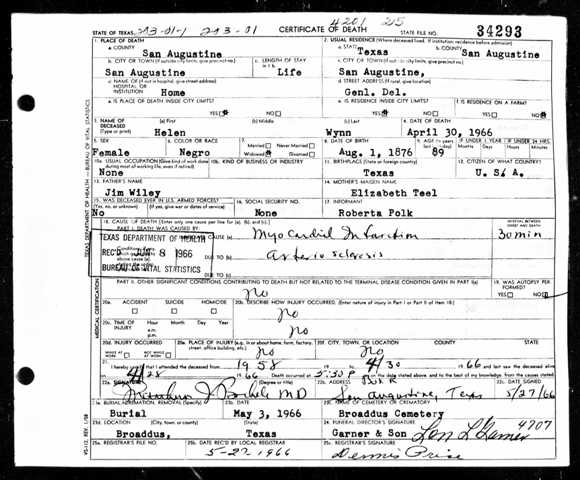 4201 215
STATE OF TEXAS 213-01-1 213-01 CERTIFICATE OF DEATH STATE FILE NO. 34293
1. PLACE OF DEATH 2. USUAL RESIDENCE (Where deceased lived. If institution: residence before admission)
a. COUNTY San Augustine a. STATE Texas b. COUNTY San Augustine
b. CITY OR TOWN (If outside city limits, give precinct no.) c. LENGTH OF STAY in 1 b. c. CITY OR TOWN (If outside city limits, give precinct no.)
San Augustine Life San Augustine,
d. NAME OF (If not in hospital, give street address) HOSPITAL OR INSTITUTION Home d. STREET ADDRESS (If rural, give location) Genl. Del.
e. IS PLACE OF DEATH INSIDE CITY LIMITS? e. IS RESIDENCE INSIDE CITY LIMITS? f. IS RESIDENCE ON A FARM?
YES NO YES NO YES NO
3. NAME OF DECEASED (Type or print) (a) First (b) Middle (c) Last 4. DATE OF DEATH
Helen Wynn April 30, 1966
5. SEX 6. COLOR OR RACE 7. Married Never Married Widowed Divorced 8. DATE OF BIRTH 9. AGE IF UNDER 1 YEAR IF UNDER 24 HRS
Female Negro Aug 1, 1876 89
10a. USUAL OCCUPATION (Give kind of work done) 10b. KIND OF BUSINESS OR INDUSTRY 11. BIRTHPLACE 12. CITIZEN OF WHAT COUNTRY?
None Texas U. S. A.
13. FATHER'S NAME 14. MOTHER'S MAIDEN NAME
Jim Wiley Elizabeth Teel
15. WAS DECEASED EVER IN U.S. ARMED FORCES? 16. SOCIAL SECURITY NO.
(Yes, no, or unknown) (If yes, give war or dates of service)
No None Roberta Polk
18. CAUSE OF DEATH (Enter only one cause per line for (a), (b), and (c).) INTERVAL BETWEEN ONSET AND DEATH
PART I. DEATH WAS CAUSED BY:
TEXAS DEPARTMENT OF HEALTH CAUSE (a) Myocardial Infarction 30 min
REC'D JUN 8 1966 DUE TO arterio sclerosis
BUREAU OF VITAL STATISTICS DUE TO
PART II. OTHER SIGNIFICANT CONDITIONS CONTRIBUTING TO DEATH BUT NOT RELATED TO THE TERMINAL DISEASE CONDITION GIVEN IN PART I (a) 19. WAS AUTOPSY PERFORMED?
No YES NO
20a. ACCIDENT SUICIDE HOMICIDE 20b. DESCRIBE HOW INJURY OCCURRED. (Enter nature of injury in Part I or Part II of item 18)
No
20c. TIME OF INJURY Hour Month Day Year a.m. p.m. No
20d. INJURY OCCURRED WHILE AT WORK NOT WHILE AT WORK 20e. PLACE OF INJURY (e.g. in or about home, farm, factory, street, office building, etc.) 20f. CITY, TOWN, OR LOCATION COUNTY STATE
No No
21. I hereby certify that I attended the deceased from 1958 4/30 1966 and last saw the deceased alive
4/28 1966 Death occurred at 5:30 P m. on the date stated above; and to the best of my knowledge, from the causes stated.
22a. SIGNATURE (Degree or title) MD 22b. ADDRESS San Augustine, Texas 22c. DATE SIGNED 5/27/66
23a. BURIAL, CREMATION, REMOVAL (Specify) 23b. DATE 23c. NAME OF CEMETERY OR CREMATORY
Burial May 3, 1966 Broaddus Cemetery
23d. LOCATION (City, town, or county) (State) 24. FUNERAL DIRECTOR'S SIGNATURE 4707
Broaddus, Texas Garner & Son Lon L Garner
25a. REGISTRAR'S FILE NO. 25b. DATE REC'D BY LOCAL REGISTRAR 25c. REGISTRAR'S SIGNATURE
5-27-1966 Dennis Price
TEXAS DEPARTMENT OF HEALTH — BUREAU OF VITAL STATISTICS
MEDICAL CERTIFICATION
VS-112, REV. 1/58